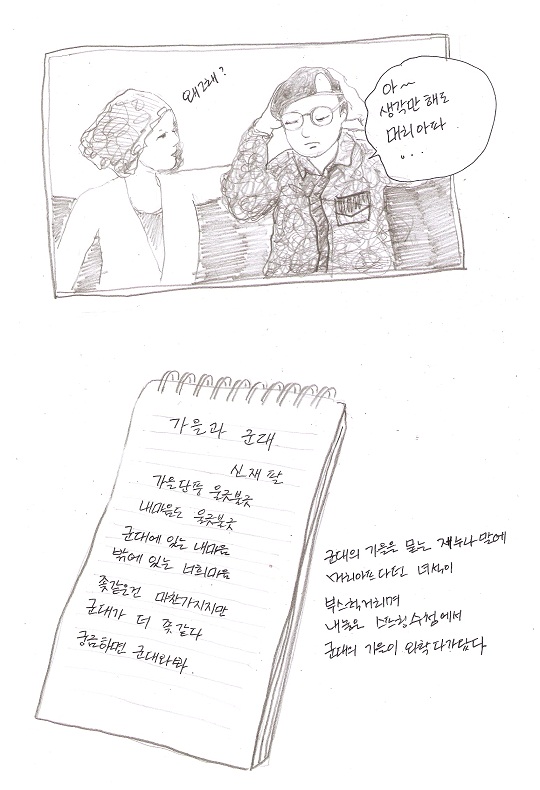 왜그래?
아~
생각만 해도
머리아파
...
가을과 군대
신재팔
가을단풍 울긋불긋
내마음도 울긋불긋
군대에 있는 내마음
밖에 있는 너희마음
좆같은건 마찬가지지만
군대가 더 좆같다
궁금하면 군대와봐.
군대의 가을은 묻는 재누나 말에
머리아프다던 녀석이
부스럭거리며
내놓은 스프링수첩에서
군대의 가을이 와락 다가왔다